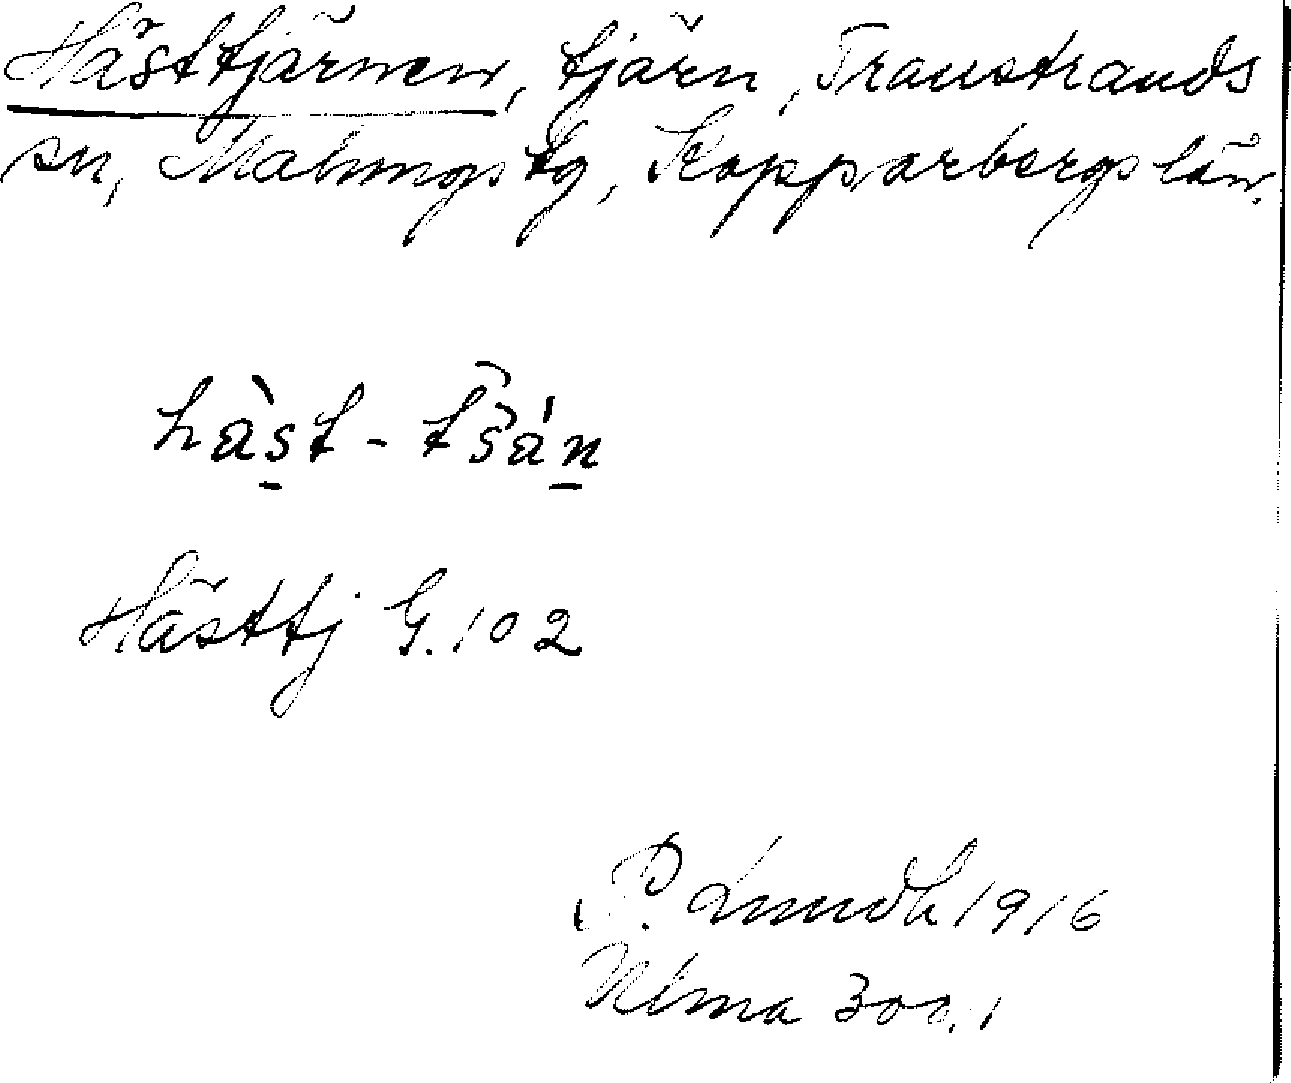 Hästtjärnen, tjärn, Transtrands
sn, Malungs tg, Kopparbergs län.
hàst - tšán
Hästtj G. 102
P. Lundh 1916
Näma 300.1